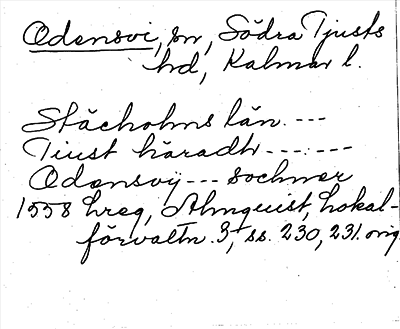 Odensvi, sn, Södra Tjusts
hd, Kalmar l.
Stächolms län ---
Tiust häradh --- ---
Odensvij --- sochner
1558 hreg, Almquist, Lokal-
förvaltn. 3, ss. 230, 231. orig.